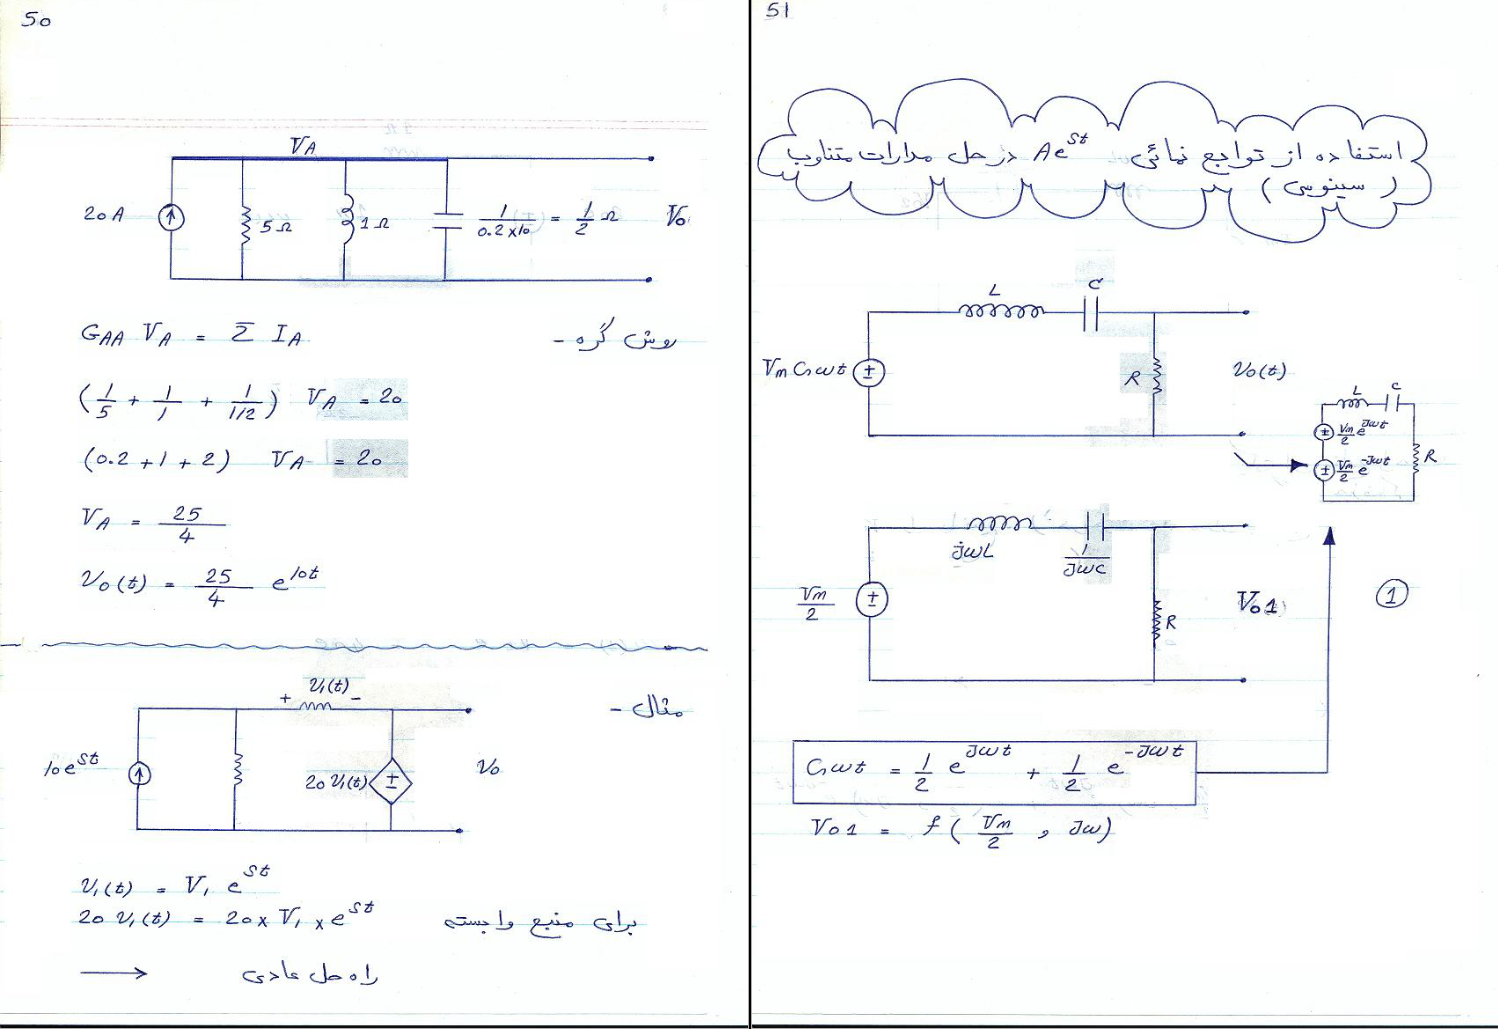 50
V_A
20 A
5 Ω
1 Ω
1/(0.2×10) = 1/2 Ω
V_o
روش گره -
G_AA V_A = Σ I_A
(1/5 + 1/1 + 1/(1/2)) V_A = 20
(0.2 + 1 + 2) V_A = 20
V_A = 25/4
v_o(t) = 25/4 e^{10t}
مثال -
+ v_1(t) -
10 e^{st}
20 v_1(t)
± 
v_o
v_1(t) = V_1 e^{st}
20 v_1(t) = 20 × V_1 × e^{st} برای منبع وابسته
→ راه حل عادی
51
استفاده از توابع نمائی Ae^{st} در حل مدارات متناوب
(سینوسی)
L
C
V_m Cos ωt
±
R
v_o(t)
L
C
V_m/2 e^{jωt}
V_m/2 e^{-jωt}
R
jωL
1/(jωC)
V_m/2
±
R
V_o1
①
Cos ωt = 1/2 e^{jωt} + 1/2 e^{-jωt}
V_o1 = f(V_m/2 , jω)